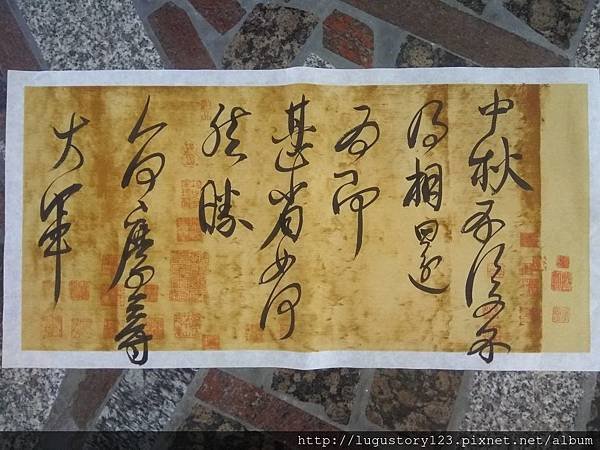 中秋不復不
得相還
為即
甚省如何
然勝
人何慶等
大軍
http://lugustory123.pixnet.net/album